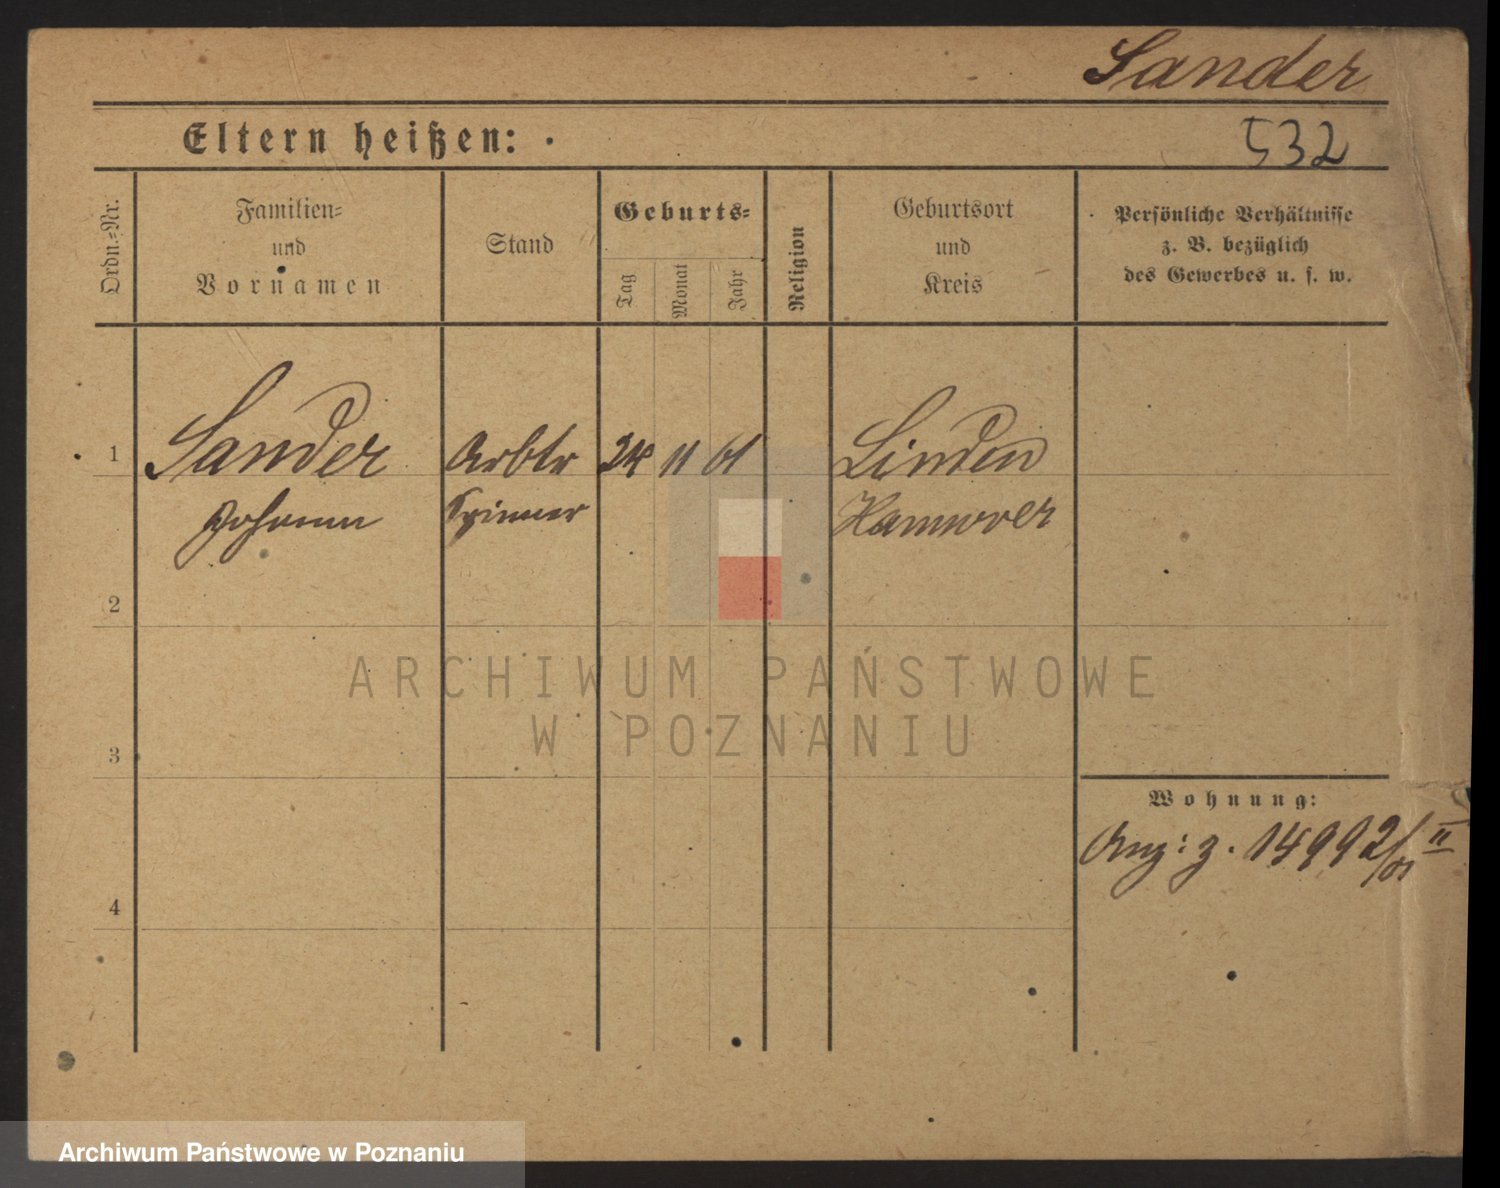 Sander
Eltern heißen:
532
Ordn.=Nr.
Familien=
und
Vornamen
Stand
Geburts=
Tag
Monat
Jahr
Religion
Geburtsort
und
Kreis
Persönliche Verhältnisse
z. B. bezüglich
des Gewerbes u. s. w.
1 Sander Arbtr 24 11 61 Linden
Johann Spinner Hannover
2
ARCHIWUM PAŃSTWOWE
W POZNANIU
3
Wohnung:
Anz: z. 14992/01 II
4
Archiwum Państwowe w Poznaniu